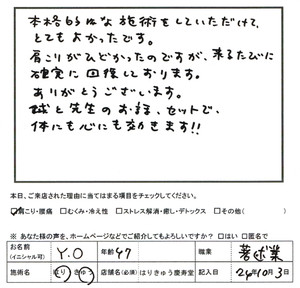 本格的な施術をしていただけて、
とてもよかったです。
肩こりがひどかったのですが、来るたびに
確実に回復しております。
ありがとうございます。
鍼と先生のお話、セットで、
体にも心にも効きます!!
本日、ご来店された理由に当てはまる項目をチェックしてください。
☑肩こり・腰痛 □むくみ・冷え性 □ストレス解消・癒し・デトックス □その他( )
※ あなた様の声を、ホームページなどでご紹介してもよろしいですか? □はい □匿名で
お名前 (イニシャル可) Y.O 年齢 47 職業 著述業
施術名 はり きゅう 店舗名(必須) はりきゅう慶寿堂 記入日 24年10月3日